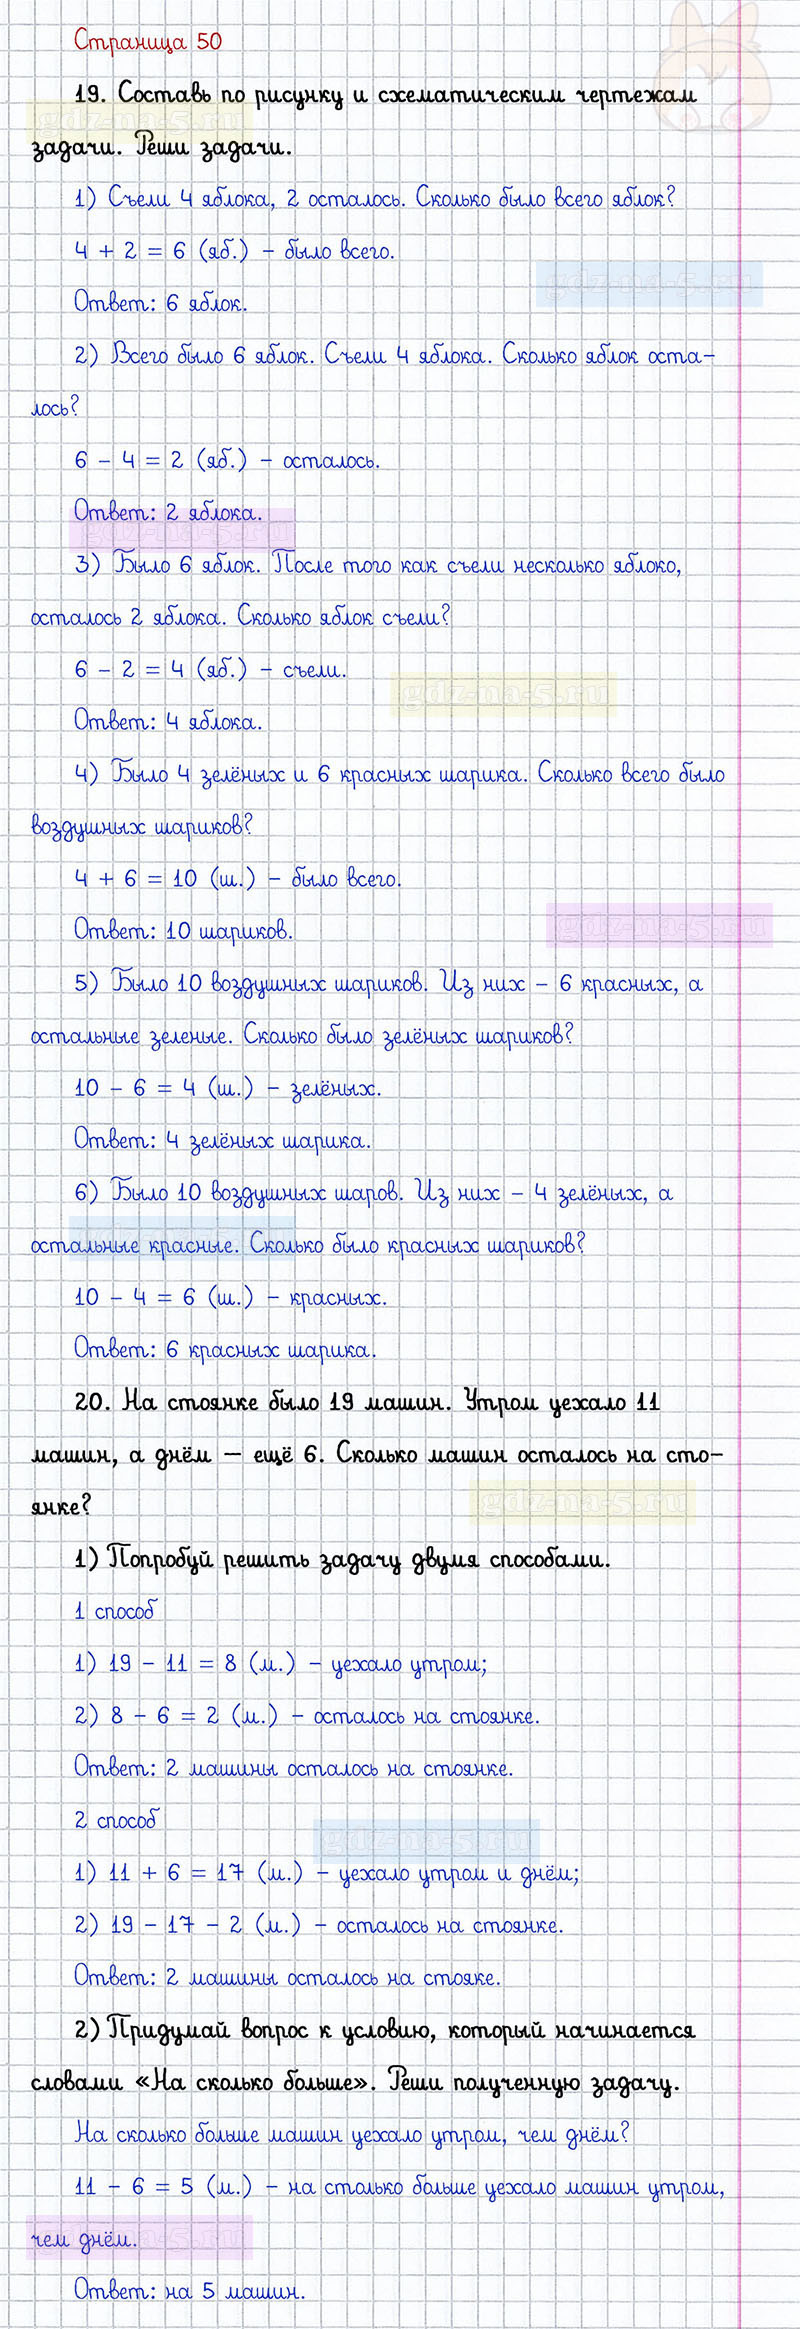 Страница 50
19. Составь по рисунку и схематическим чертежам
gdz-na-5.ru
задачи. Реши задачи.
1) Съели 4 яблока, 2 осталось. Сколько было всего яблок?
4 + 2 = 6 (яб.) – было всего.
gdz-na-5.ru
Ответ: 6 яблок.
2) Всего было 6 яблок. Съели 4 яблока. Сколько яблок оста-
лось?
6 – 4 = 2 (яб.) – осталось.
Ответ: 2 яблока.
gdz-na-5.ru
3) Было 6 яблок. После того как съели несколько яблоко,
осталось 2 яблока. Сколько яблок съели?
6 – 2 = 4 (яб.) – съели.
gdz-na-5.ru
Ответ: 4 яблока.
4) Было 4 зелёных и 6 красных шарика. Сколько всего было
воздушных шариков?
4 + 6 = 10 (ш.) – было всего.
Ответ: 10 шариков.
gdz-na-5.ru
5) Было 10 воздушных шариков. Из них – 6 красных, а
остальные зеленые. Сколько было зелёных шариков?
10 – 6 = 4 (ш.) – зелёных.
Ответ: 4 зелёных шарика.
6) Было 10 воздушных шаров. Из них – 4 зелёных, а
gdz-na-5.ru
остальные красные. Сколько было красных шариков?
10 – 4 = 6 (ш.) – красных.
Ответ: 6 красных шарика.
20. На стоянке было 19 машин. Утром уехало 11
машин, а днём – ещё 6. Сколько машин осталось на сто-
янке?
gdz-na-5.ru
1) Попробуй решить задачу двумя способами.
1 способ
1) 19 – 11 = 8 (м.) – уехало утром;
2) 8 – 6 = 2 (м.) – осталось на стоянке.
Ответ: 2 машины осталось на стоянке.
2 способ
gdz-na-5.ru
1) 11 + 6 = 17 (м.) – уехало утром и днём;
2) 19 – 17 – 2 (м.) – осталось на стоянке.
Ответ: 2 машины осталось на стояке.
2) Придумай вопрос к условию, который начинается
словами «На сколько больше». Реши полученную задачу.
На сколько больше машин уехало утром, чем днём?
11 – 6 = 5 (м.) – на столько больше уехало машин утром,
чем днём.
gdz-na-5.ru
Ответ: на 5 машин.